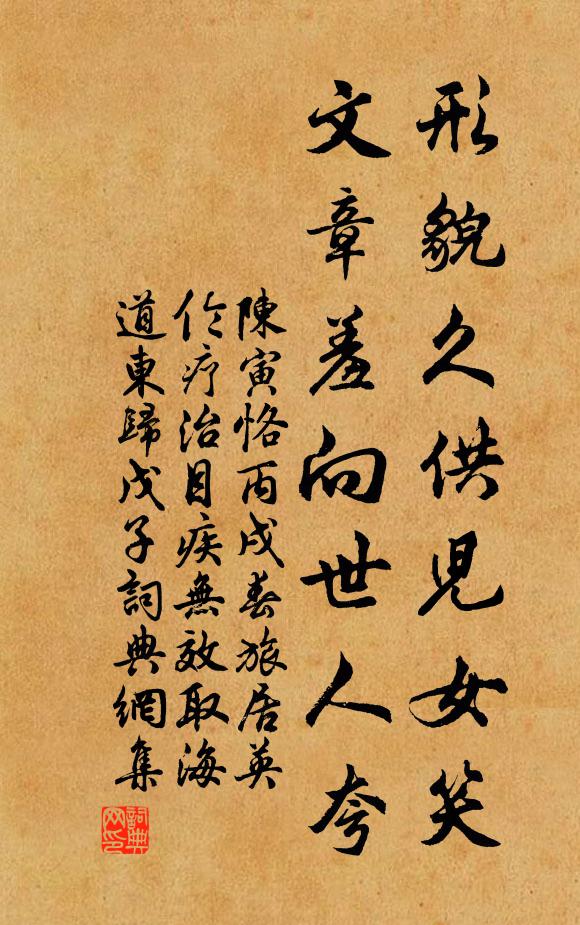 形貌久供兒女笑
文章羞向世人夸
陳寅恪丙戌春旅居英
伦疗治目疾無效取海
道東歸戊子詞典網集
詞典网印